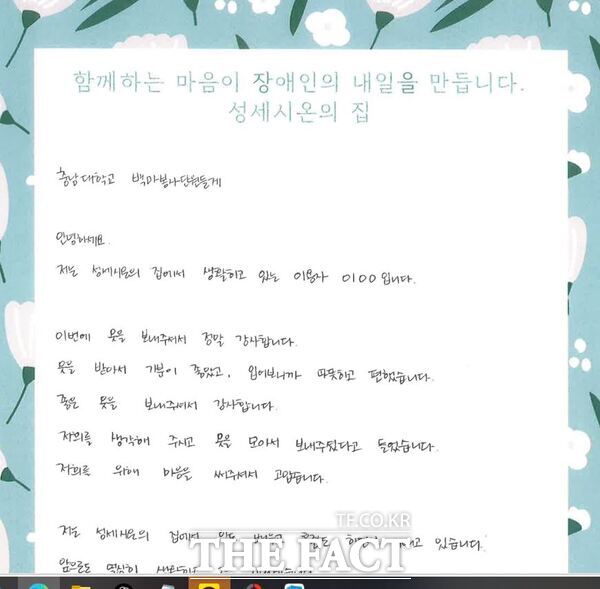 함께하는 마음이 장애인의 내일을 만듭니다.
성세시온의 집
충남대학교 백마봉사단원들께
안녕하세요.
저는 성세시온의 집에서 생활하고 있는 이용자 이00입니다.
이번에 옷을 보내주셔서 정말 감사합니다.
옷을 받아서 기분이 좋았고, 입어보니까 따뜻하고 편했습니다.
좋은 옷을 보내주셔서 감사합니다.
저희를 생각해 주시고 옷을 모아서 보내주셨다고 들었습니다.
저희를 위해 마음을 써주셔서 고맙습니다.
저는 성세시온의 집에서 있습니다.
앞으로도 열심히
TF.CO.KR
THE FACT